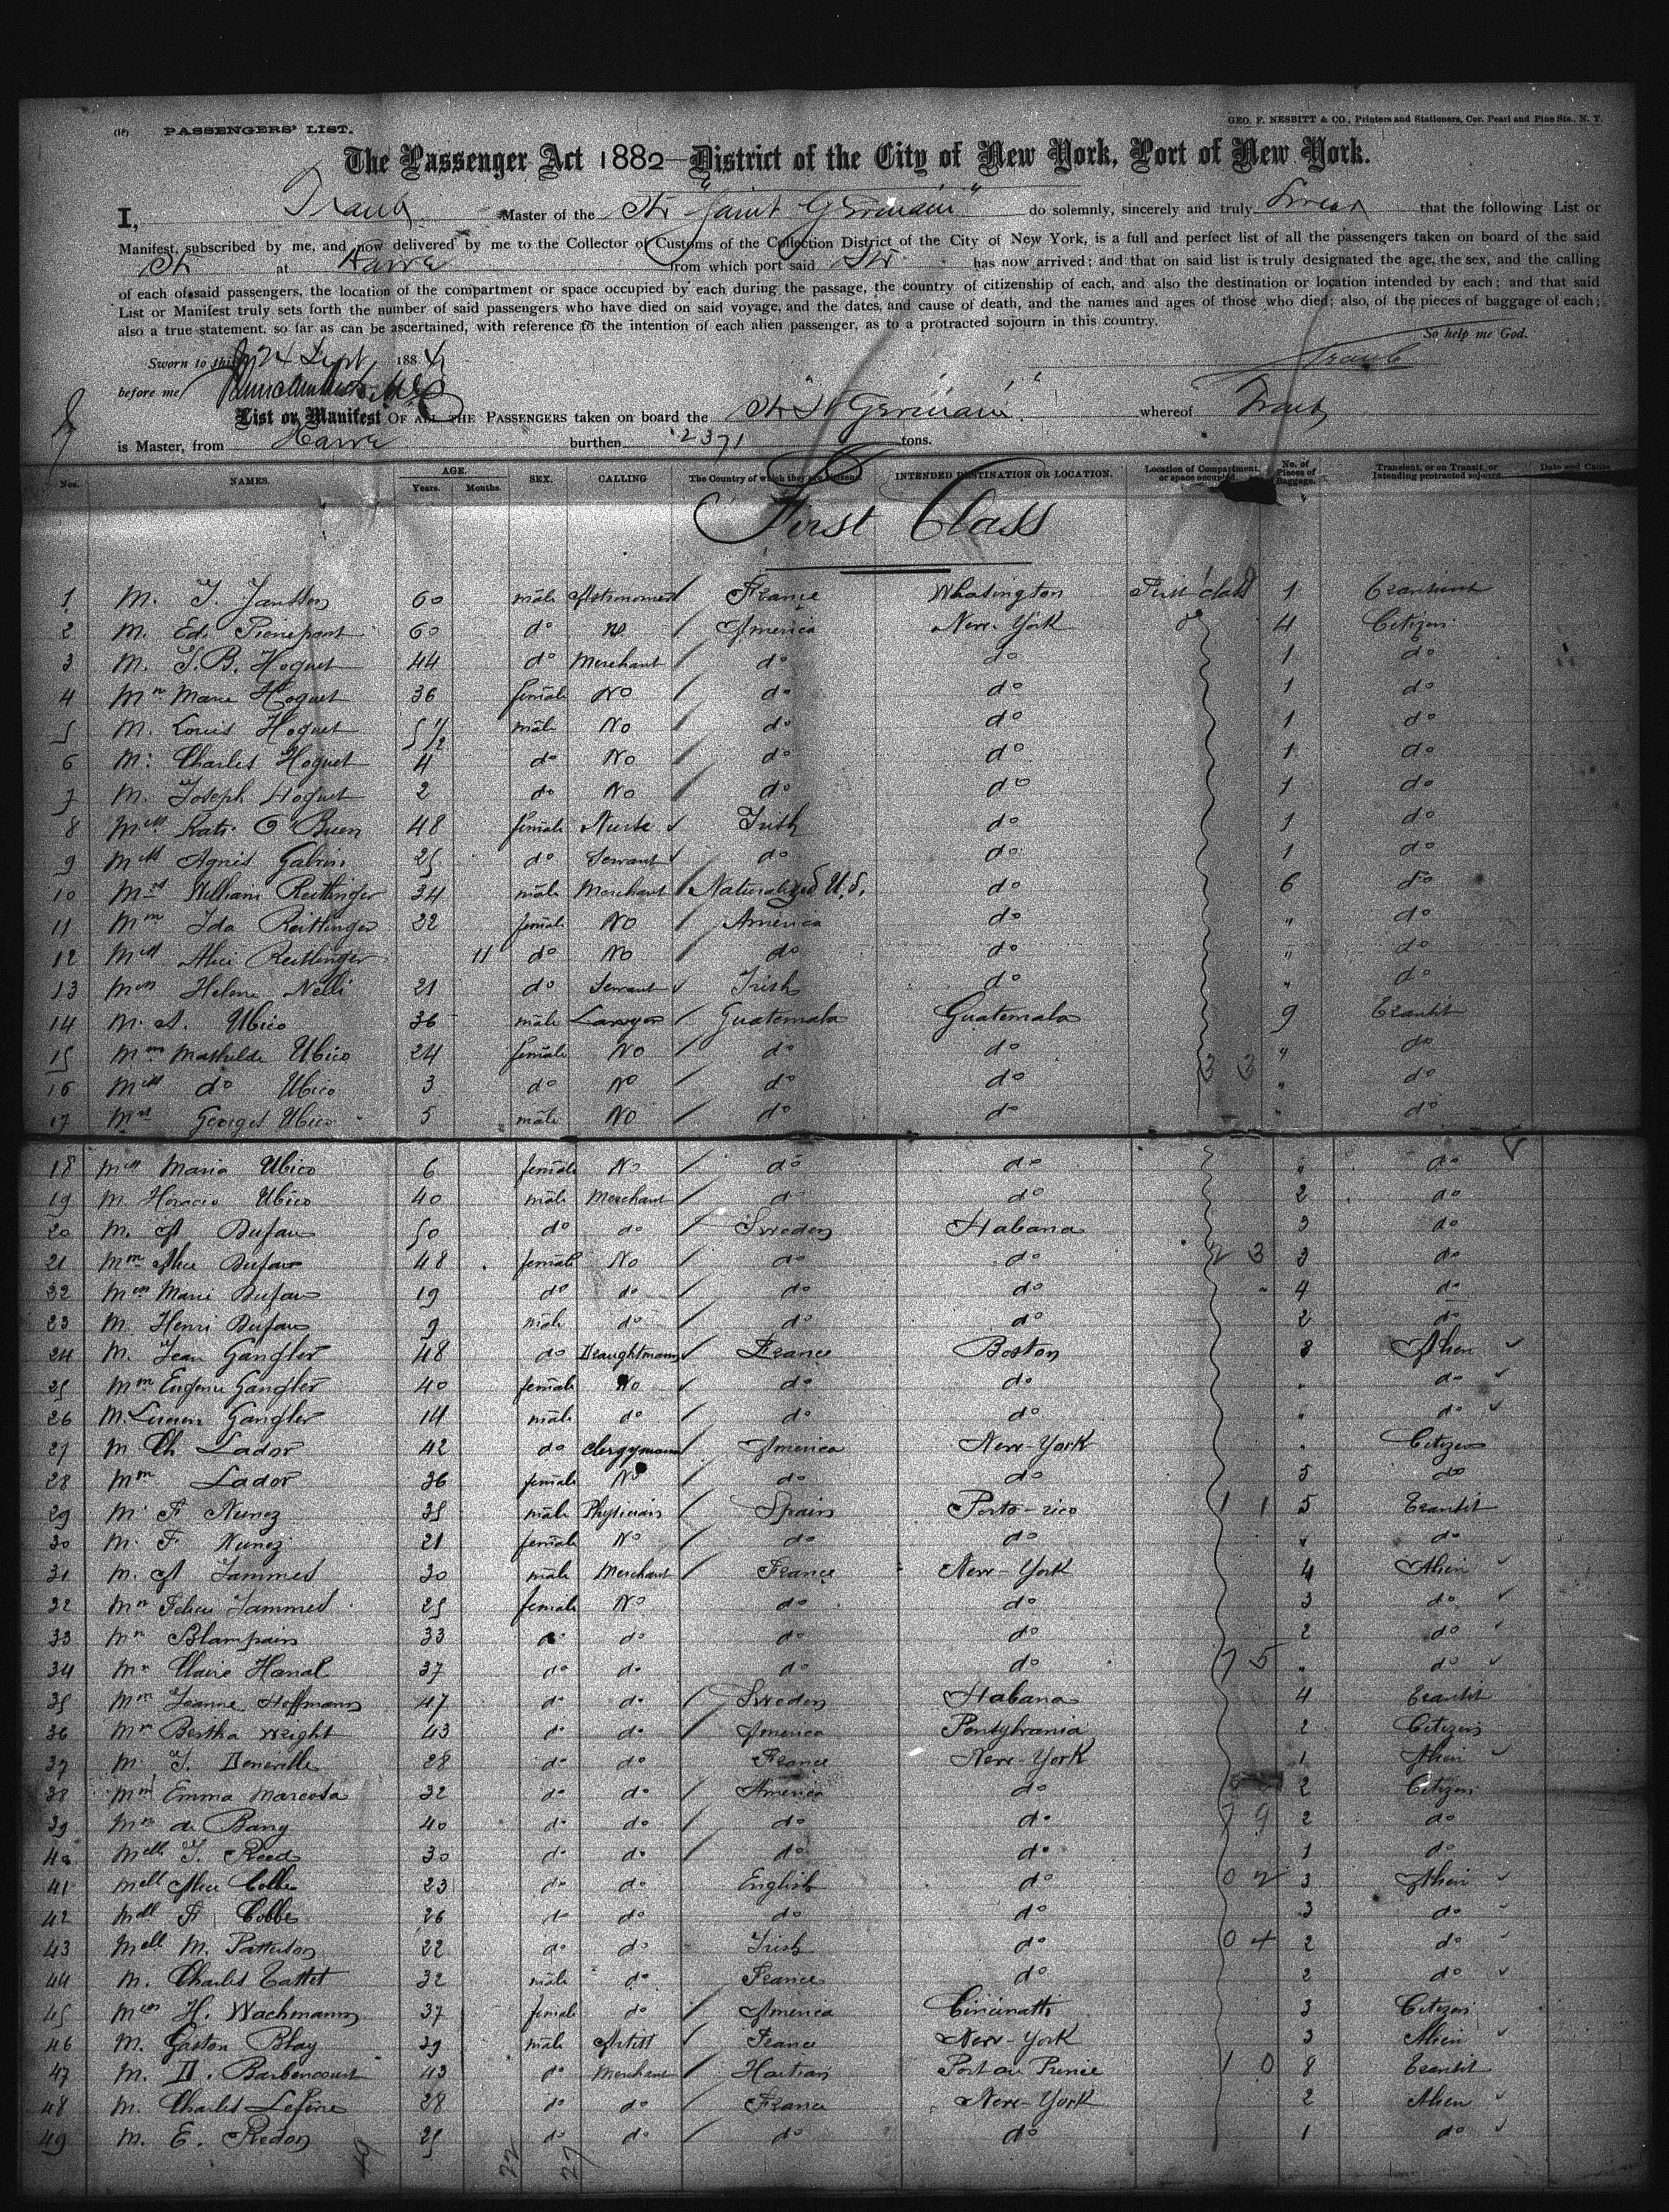 (18) PASSENGERS' LIST.
GEO. F. NESBITT & CO., Printers and Stationers, Cor. Pearl and Pine Sts., N. Y.
The Passenger Act 1882 District of the City of New York, Port of New York.
I, Traub Master of the Str "Saint Germain" do solemnly, sincerely and truly Swear that the following List or
Manifest, subscribed by me, and now delivered by me to the Collector of Customs of the Collection District of the City of New York, is a full and perfect list of all the passengers taken on board of the said
Str at Havre from which port said Str has now arrived; and that on said list is truly designated the age, the sex, and the calling
of each of said passengers, the location of the compartment or space occupied by each during the passage, the country of citizenship of each, and also the destination or location intended by each; and that said
List or Manifest truly sets forth the number of said passengers who have died on said voyage, and the dates and cause of death, and the names and ages of those who died; also, of the pieces of baggage of each;
also a true statement, so far as can be ascertained, with reference to the intention of each alien passenger, as to a protracted sojourn in this country.
So help me God.
Sworn to this 24 Sept 1884
Traub
before me
List or Manifest OF ALL THE PASSENGERS taken on board the Str St Germain whereof Traub
is Master, from Havre burthen 2371 tons.
Nos. NAMES. AGE. Years. Months. SEX. CALLING The Country of which they are citizens. INTENDED DESTINATION OR LOCATION. Location of Compartment or space occupied. No. of Pieces of Baggage. Transient, or on Transit, or Intending protracted sojourn. Date and Cause
First Class
1 M. J. Janssen 60 male Astronomer France Whasington First class 1 Transient
2 M. Ed. Pierrepont 60 do no America New-York do 4 Citizen
3 M. J. B. Hoguet 44 do Merchant do do 1 do
4 Mm Marie Hoguet 36 female No do do 1 do
5 M. Louis Hoguet 5 1/2 male No do do 1 do
6 M. Charles Hoguet 4 do No do do 1 do
7 M. Joseph Hoguet 2 do No do do 1 do
8 Mell Kate O'Buen 48 female Nurse Irish do 1 do
9 Mell Agnes Galvin 25 do Servant do do 1 do
10 William Reitlinger 34 male Merchant Naturalized U.S. do 6 do
11 Mm Ida Reitlinger 22 female No America do " do
12 Mell Alice Reitlinger 11 do No do do " do
13 Mell Helene Nelli 21 do Servant Irish do " do
14 M. A. Ubico 36 male Lawyer Guatemala Guatemala 9 Transit
15 Mm Mathilde Ubico 24 female No do do " do
16 Mell do Ubico 3 do No do do 3 3 " do
17 Georges Ubico 5 male No do do " do
18 Mell Maria Ubico 6 female No do do " do
19 M. Horacio Ubico 40 male Merchant do do 2 do
20 M. A Dufau 50 do do Sweden Habana 3 do
21 Mm Alice Dufau 48 female No do do 2 3 3 do
22 Mell Marie Dufau 19 do do do do 4 do
23 M. Henri Dufau 9 male do do do 2 do
24 M. Jean Gangler 48 do Draughtmann France Boston 8 Alien
25 Mm Eugenie Gangler 40 female No do do " do
26 M. Lucien Gangler 14 male do do do " do
27 M. Ch Lador 42 do Clergymann America New-York " Citizen
28 Mm Lador 36 female No do do 5 do
29 M. F Nunez 35 male Physician Spain Porto-rico 1 1 5 Transit
30 M. F. Nunez 21 female No do do " do
31 M. A Jammes 30 male Merchant France New-York 4 Alien
32 Mm Felicie Jammes 25 female No do do 3 do
33 Mm Blampain 33 do do do do 2 do
34 Mm Claire Hanal 37 do do do do 7 5 " do
35 Mm Jeanne Hoffmann 47 do do Sweden Habana 4 Transit
36 Mm Bertha Wright 43 do do America Pensylvania 2 Citizen
37 M. J. Deneville 28 do do France New-York 1 Alien
38 Mm Emma Marcosa 32 do do America do 2 Citizen
39 Mm de Bany 40 do do do do 7 9 2 do
40 Mell J. Reed 30 do do do do 1 do
41 Mell Alice Cobbe 23 do do English do 0 2 3 Alien
42 Mell F Cobbe 26 do do do do 3 do
43 Mell M. Patterson 22 do do Irish do 0 4 2 do
44 M. Charles Tattet 32 male do France do 2 do
45 H. Wachmann 37 female do America Cincinatti 3 Citizen
46 M. Gaston Blay 39 male Artist France New-York 3 Alien
47 M. D. Barbencourt 43 do Merchant Haitian Port au Prince 1 0 8 Transit
48 M. Charles Lefevre 28 do do France New-York 2 Alien
49 M. E. Redon 25 do do do do 1 do
49 22 27